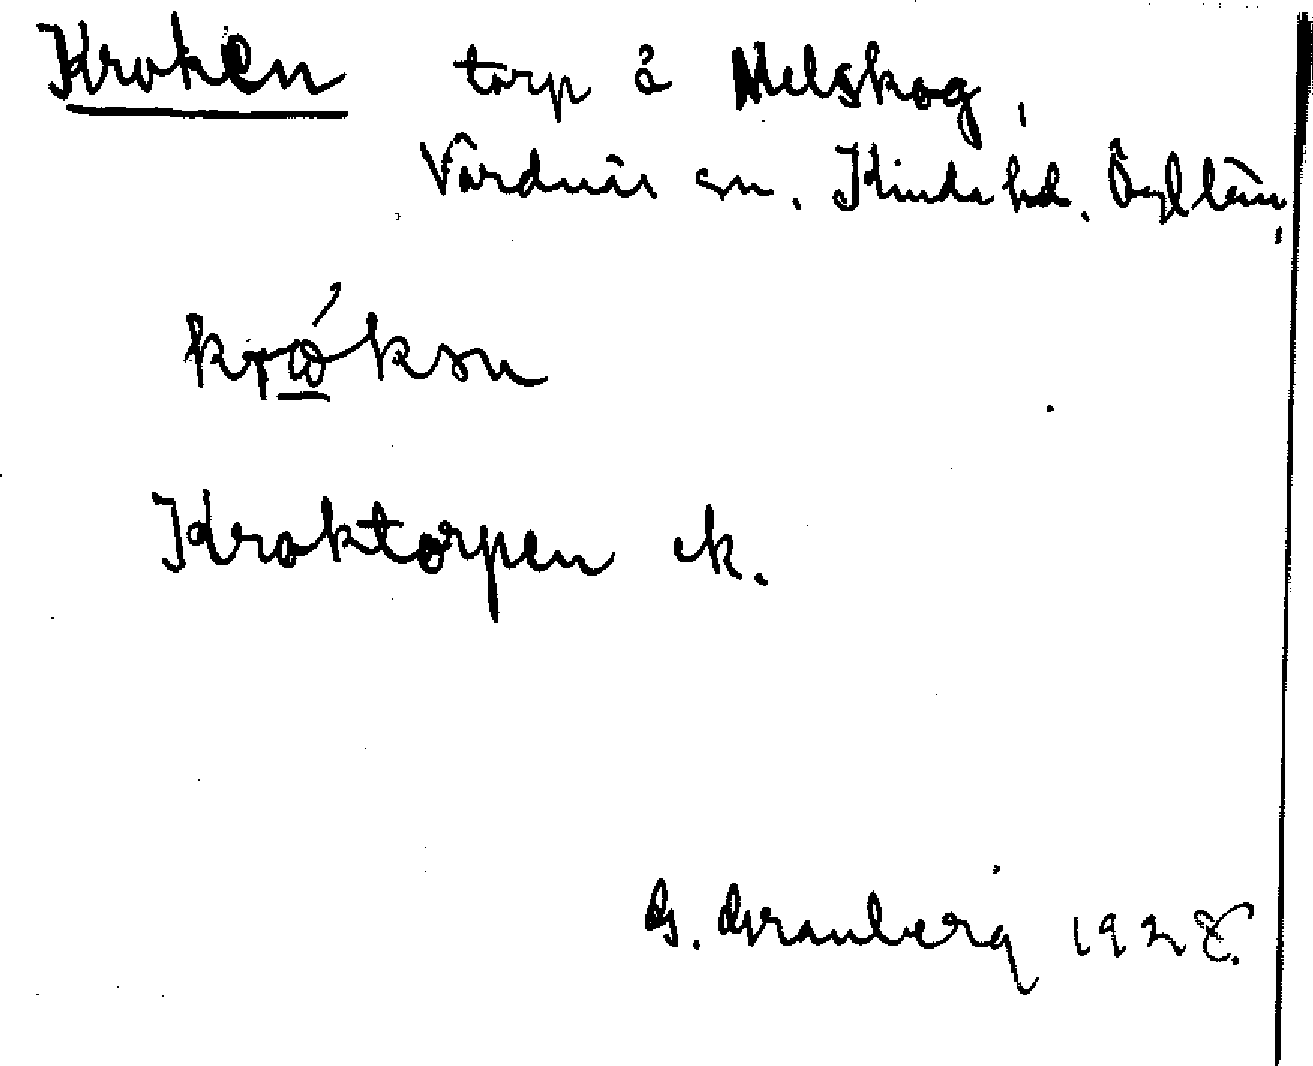 Kroken torp å Melskog,
Vårdnäs sn. Kinda hd. Ög. län.
Kroktorpen ek.
G. Granberg 1928.